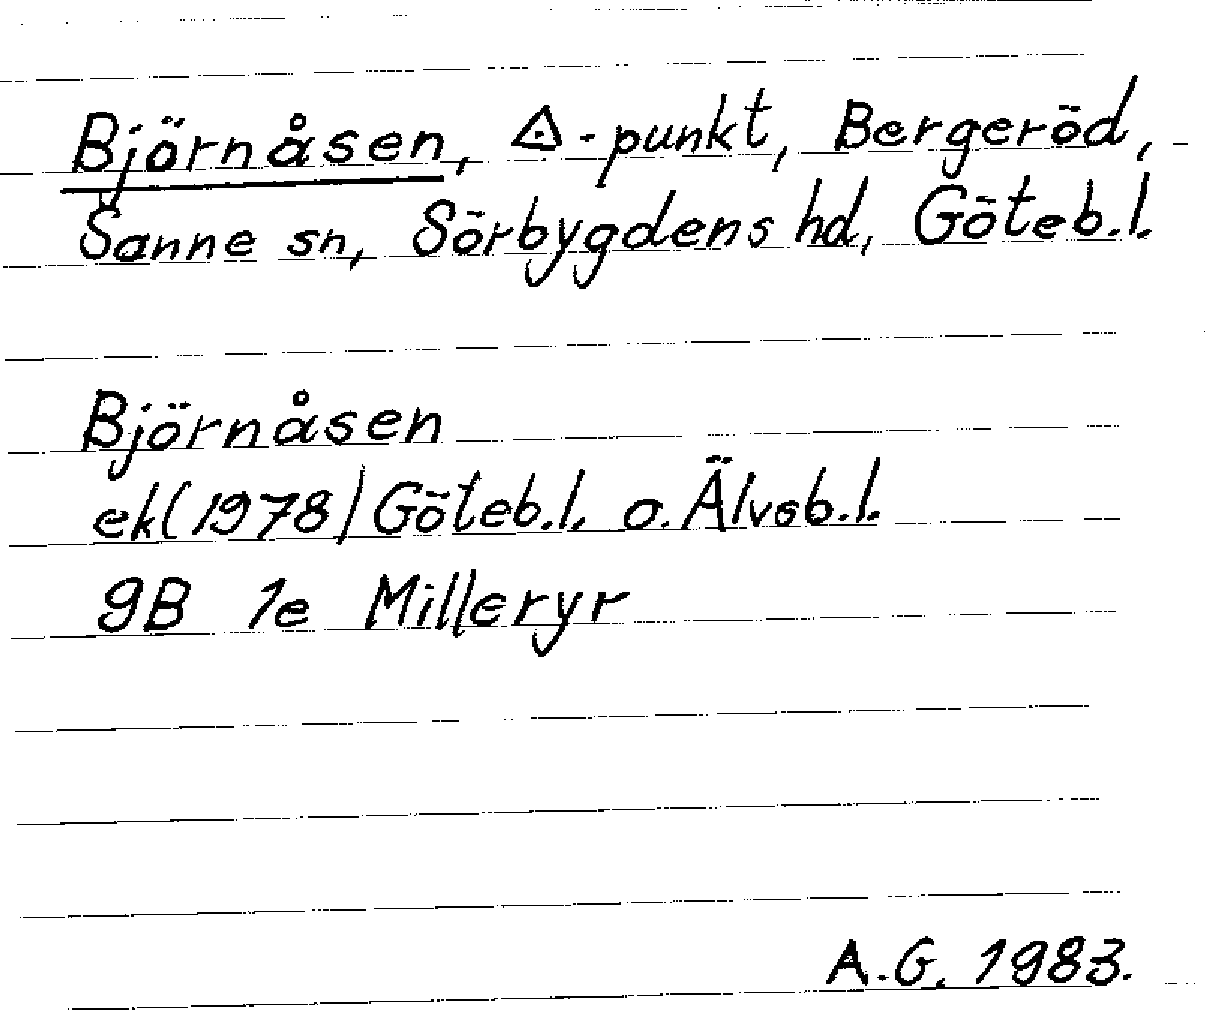 Björnåsen, △-punkt, Bergeröd,
Sanne sn, Sörbygdens hd, Göteb.l.
Björnåsen
ek(1978) Göteb.l. o. Älvsb.l.
9B 1e Milleryr
A.G. 1983.